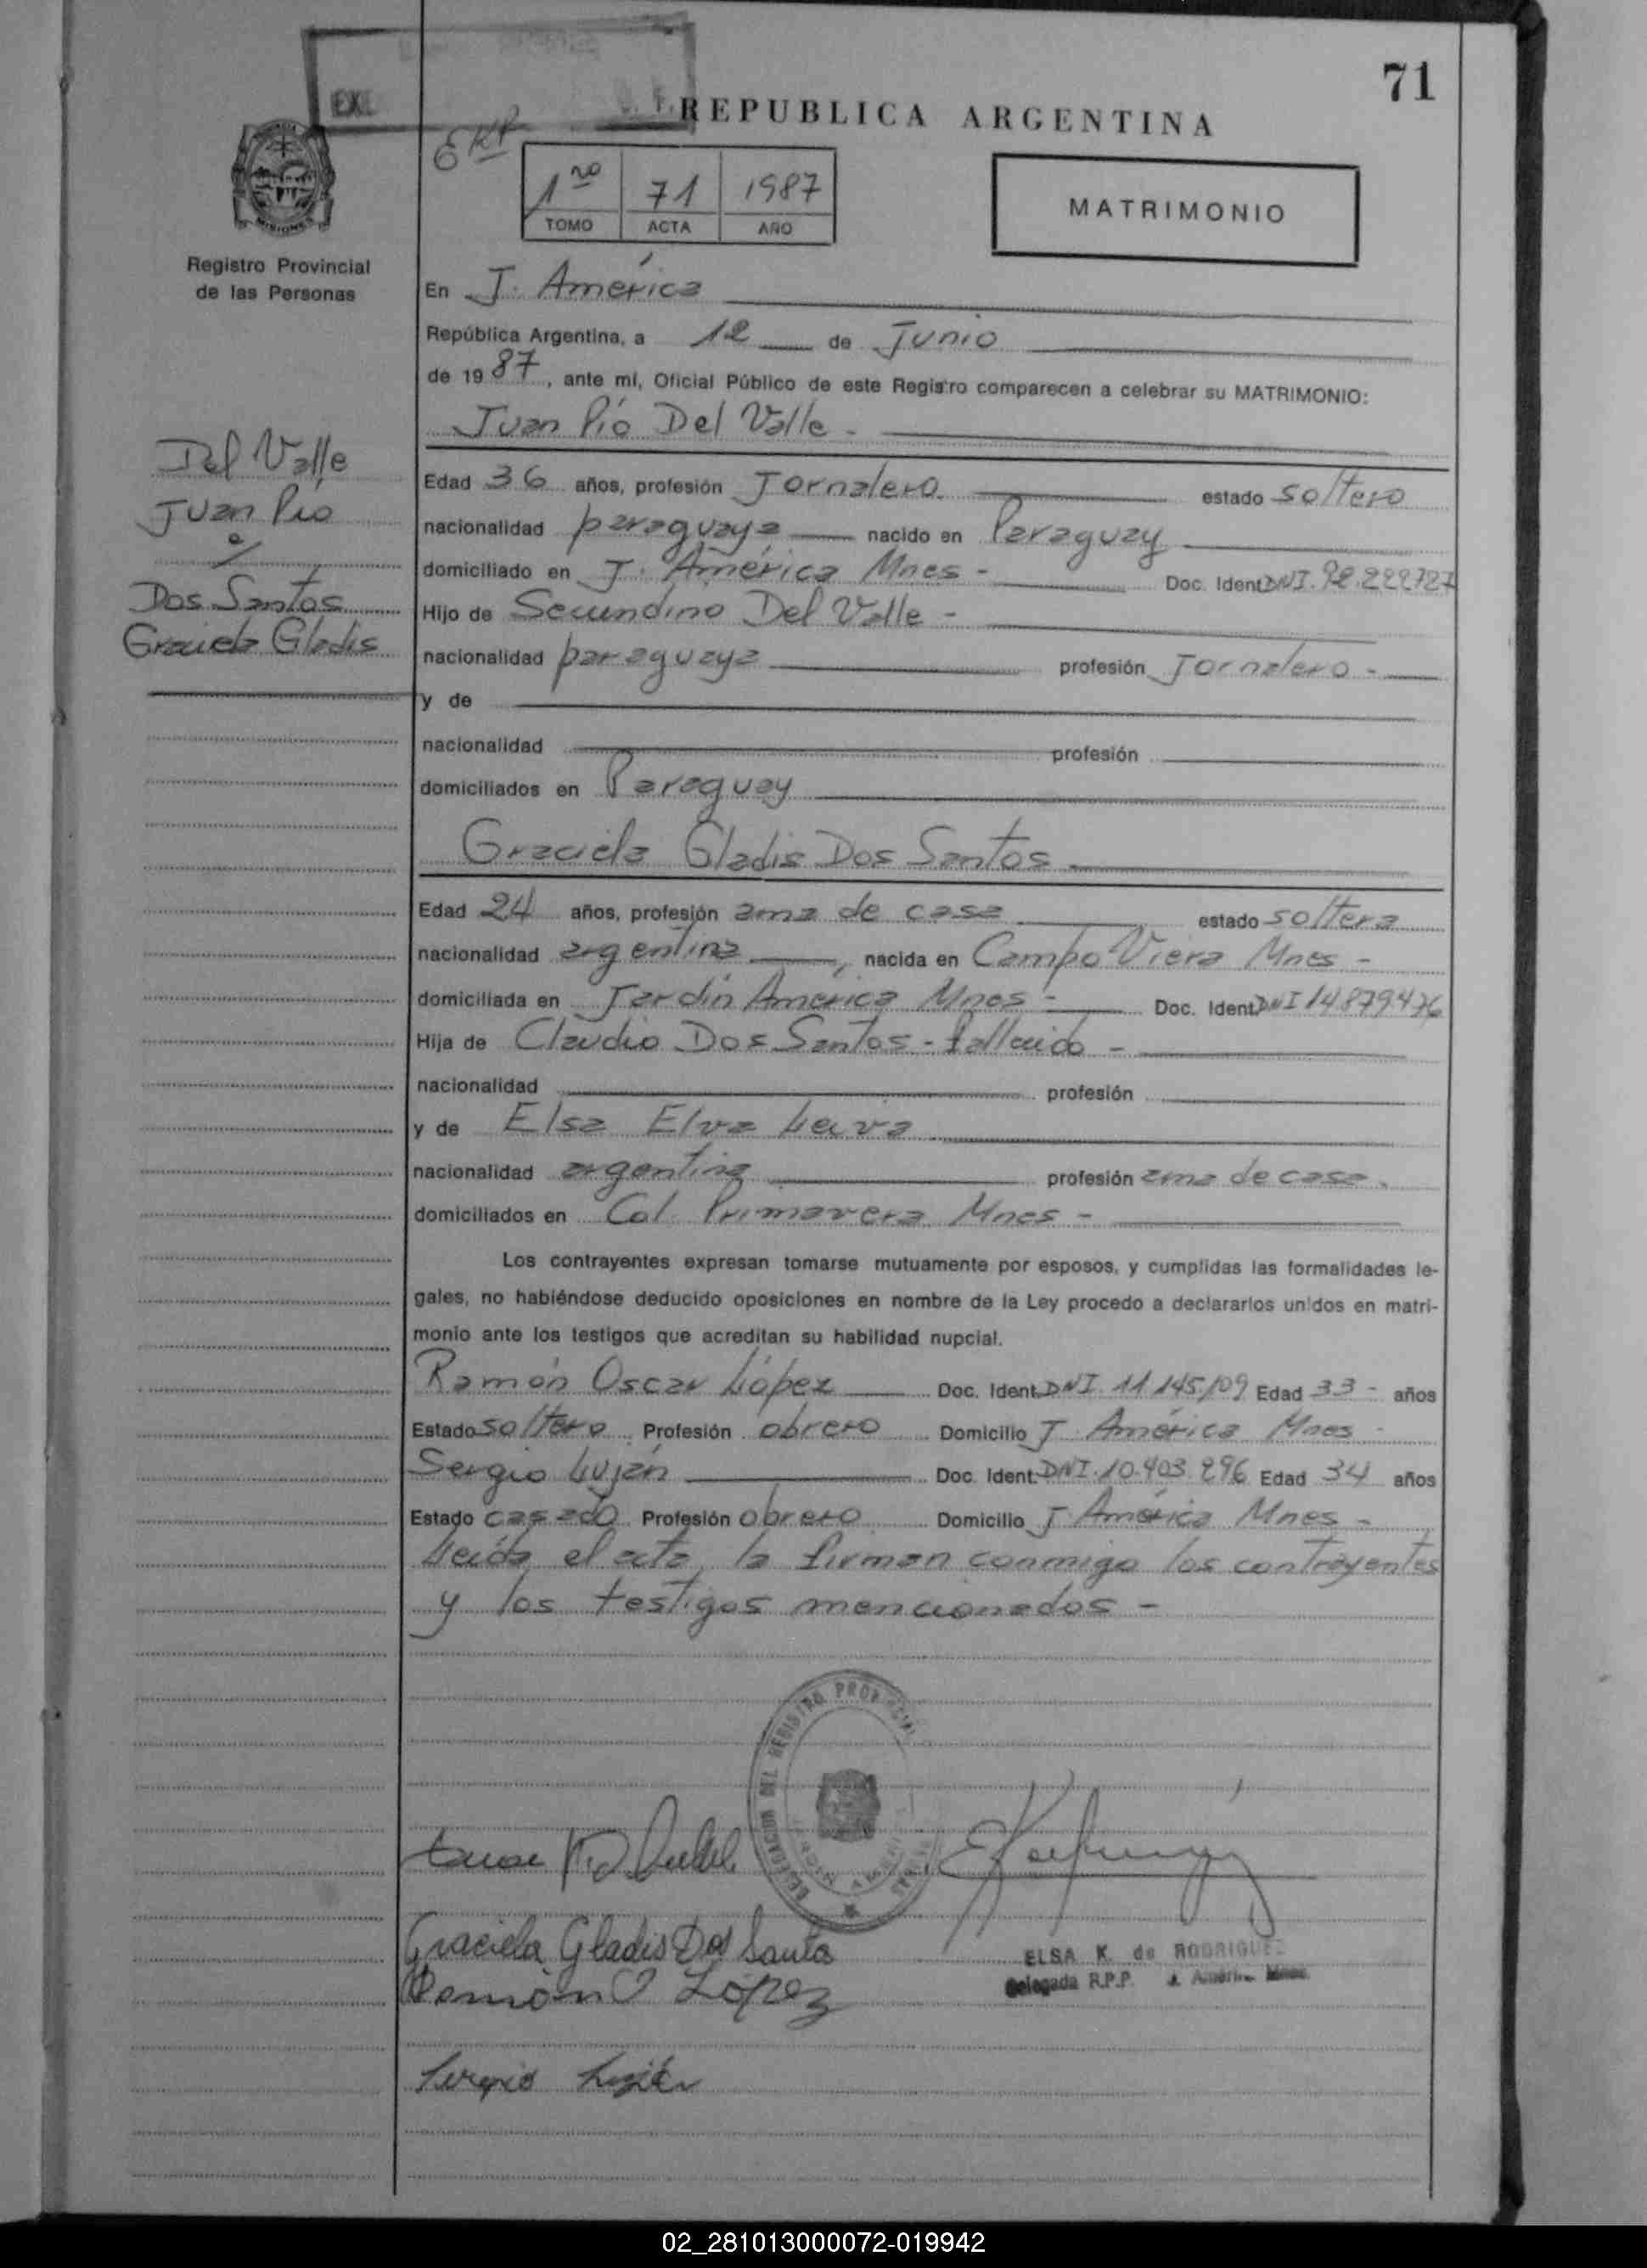 71
EXP
REPUBLICA ARGENTINA
1ro 71 1987
TOMO ACTA AÑO
MATRIMONIO
Registro Provincial
de las Personas
En J. América
República Argentina, a 12 de Junio
de 1987, ante mí, Oficial Público de este Registro comparecen a celebrar su MATRIMONIO:
Juan Pío Del Valle -
Del Valle
Juan Pío
Dos Santos
Graciela Gladis
Edad 36 años, profesión Jornalero estado soltero
nacionalidad paraguaya nacido en Paraguay
domiciliado en J. América Mnes - Doc. Ident DNI. 92.222727
Hijo de Secundino Del Valle -
nacionalidad paraguaya profesión Jornalero -
y de
nacionalidad profesión
domiciliados en Paraguay
Graciela Gladis Dos Santos
Edad 24 años, profesión ama de casa estado soltera
nacionalidad argentina, nacida en Campo Viera Mnes -
domiciliada en Jardín América Mnes - Doc. Ident. DNI 14.879.476
Hija de Claudio Dos Santos - fallecido -
nacionalidad profesión
y de Elsa Elva Leiva
nacionalidad argentina profesión ama de casa.
domiciliados en Col. Primavera Mnes -
Los contrayentes expresan tomarse mutuamente por esposos, y cumplidas las formalidades le-
gales, no habiéndose deducido oposiciones en nombre de la Ley procedo a declararlos unidos en matri-
monio ante los testigos que acreditan su habilidad nupcial.
Ramón Oscar López Doc. Ident. DNI. 11.145.109 Edad 33 - años
Estado soltero Profesión obrero Domicilio J. América Mnes
Sergio Luján Doc. Ident. DNI. 10.403.296 Edad 34 años
Estado casado Profesión obrero Domicilio J América Mnes -
Leída el acta, la firman conmigo los contrayentes
y los testigos mencionados -
DELEGACION DEL REGISTRO PROVINCIAL
Graciela Gladis Dos Santos
Ramón O López
Sergio Luján
ELSA K. de RODRIGUEZ
Delegada R.P.P. J. América Mnes.
02_281013000072-019942